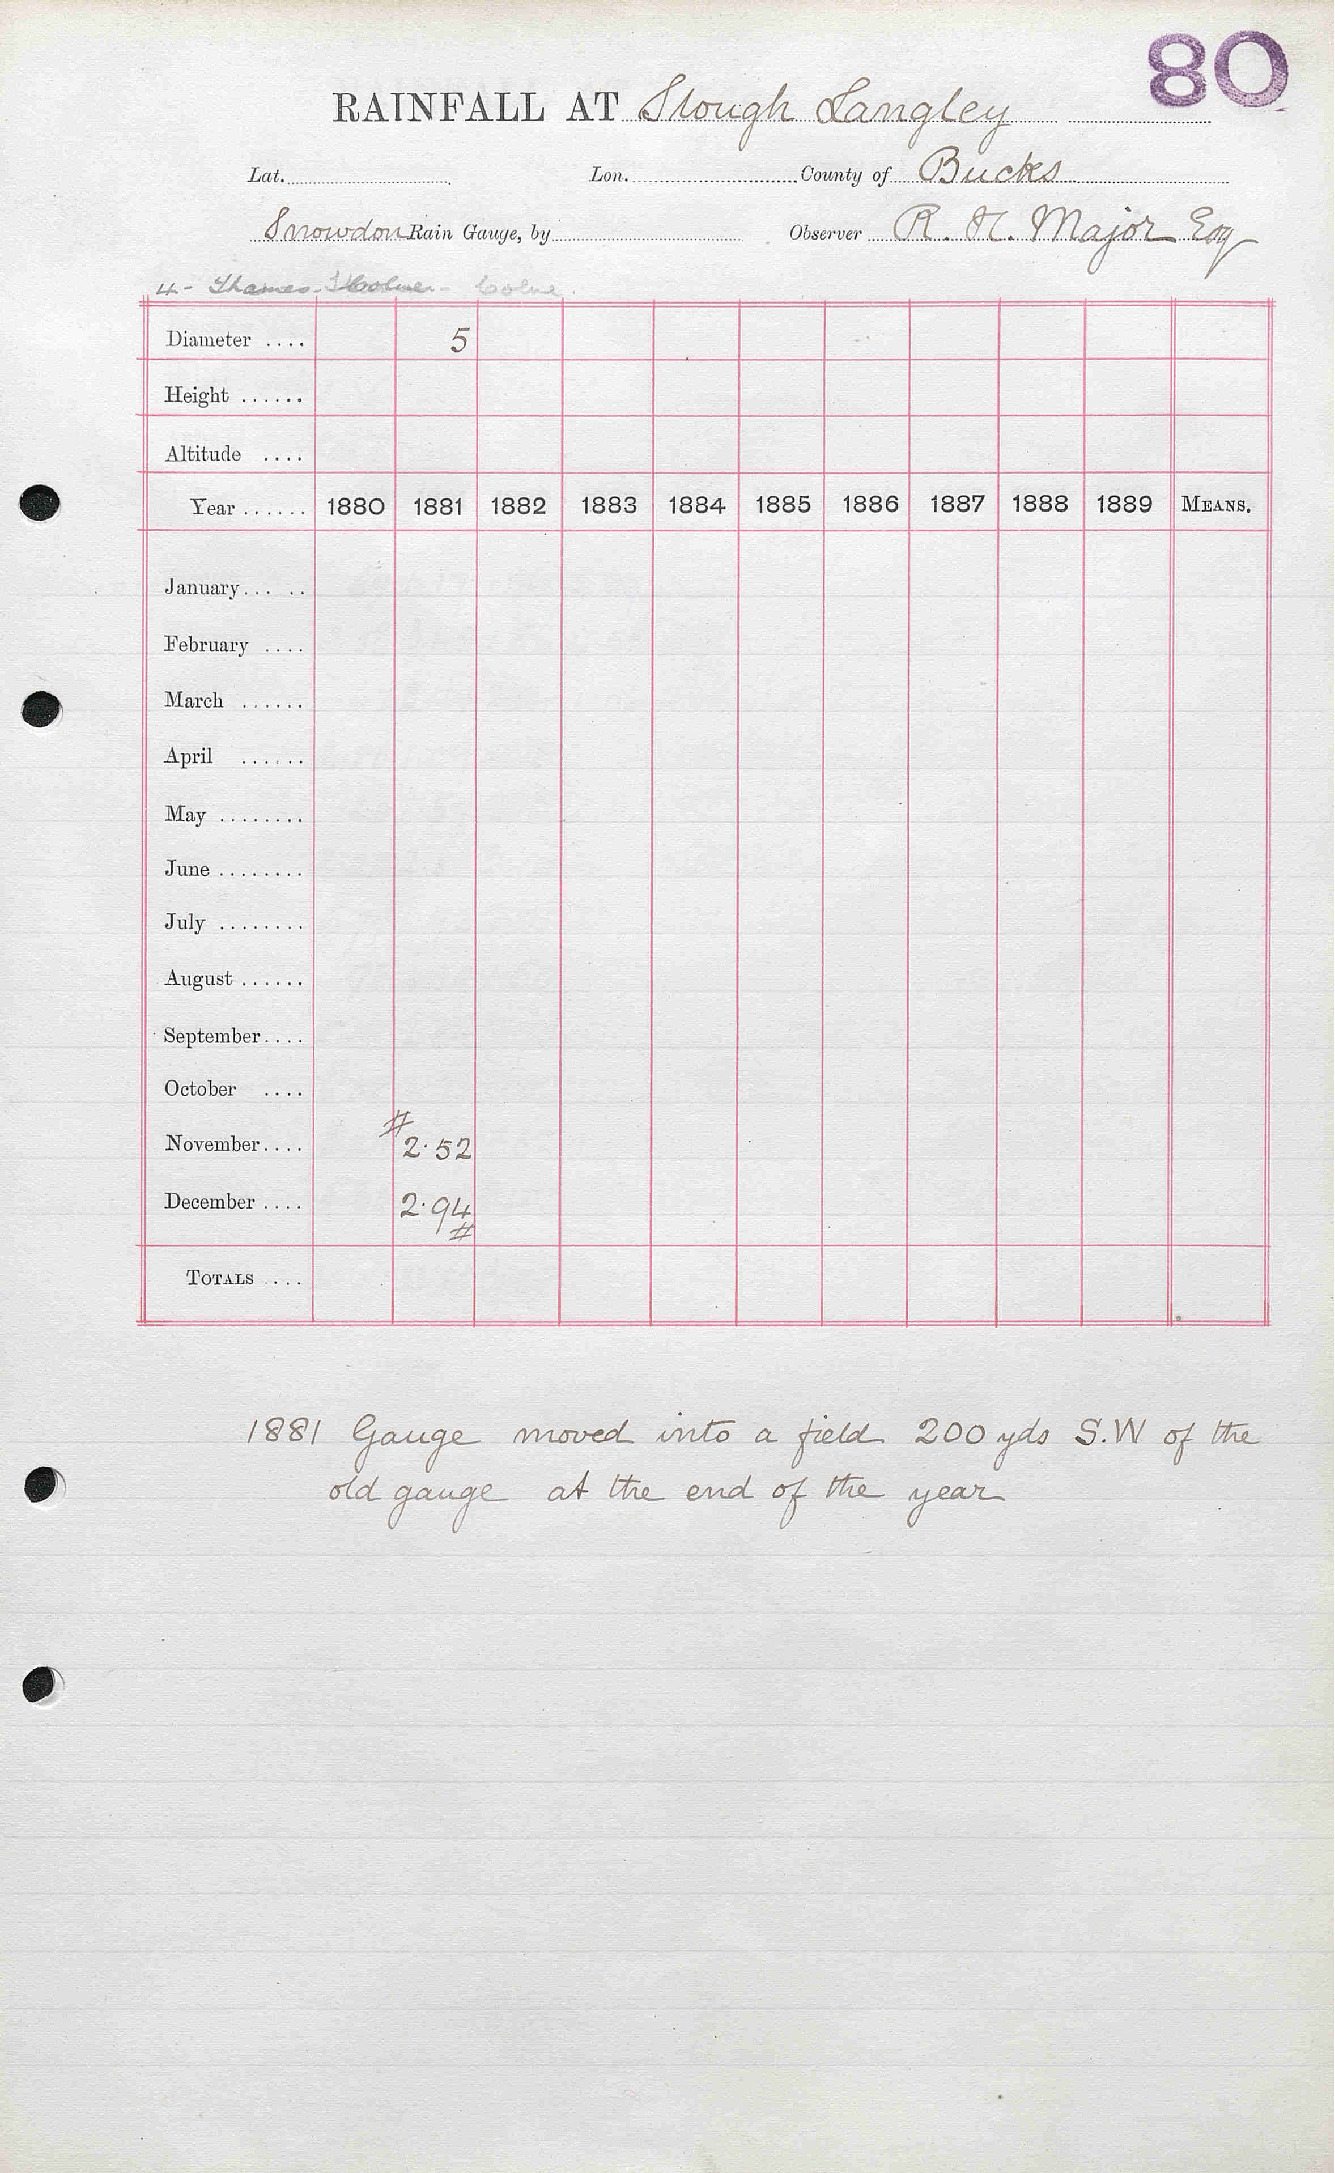 80
RAINFALL AT Slough Langley
Lat. Lon. County of Bucks
Snowdon Rain Gauge, by Observer R. H. Major Esq
4 - Thames - Colne
Diameter .... 5
Height ......
Altitude ....
Year ...... 1880 1881 1882 1883 1884 1885 1886 1887 1888 1889 MEANS.
January... ..
February ....
March ......
April ......
May ........
June ........
July ........
August ......
September....
October ....
#
November.... 2.52
December .... 2.94
#
TOTALS ....
1881 Gauge moved into a field 200 yds S.W of the
old gauge at the end of the year